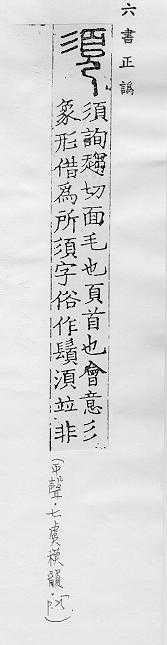 六書正譌
須
須詢趨切面毛也頁首也會意彡
象形借爲所須字俗作鬚湏並非
(平聲．七虞模韻．